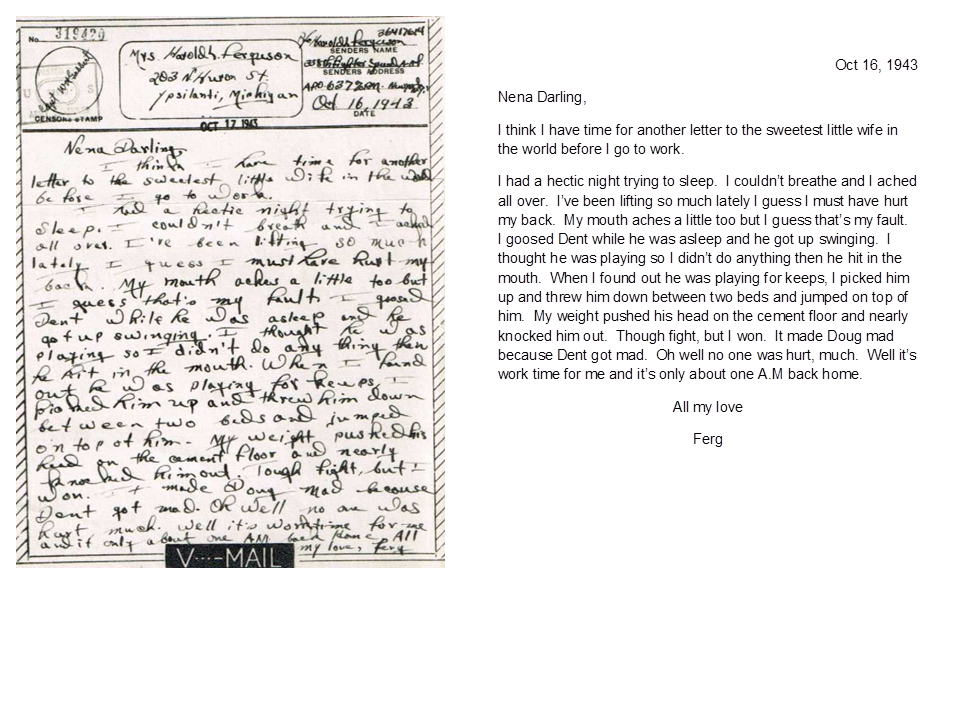 No. 319420
Mrs. Harold L. Ferguson
203 N Huron St.
Ypsilanti, Michigan
36417614
Harold L. Ferguson
SENDERS NAME
SENDERS ADDRESS
APO 637
Oct 16, 1943
DATE
CENSORS STAMP
OCT 17 1943
Nena Darling,
I think I have time for another
letter to the sweetest little wife in the world
before I go to work.
I had a hectic night trying to
sleep. I couldn't breath and I ached
all over. I've been lifting so much
lately I guess I must have hurt my
back. My mouth aches a little too but
I guess that's my fault. I goosed
Dent while he was asleep and he
got up swinging. I thought he was
playing so I didn't do any thing then
he hit in the mouth. When I found
out he was playing for keeps, I
picked him up and threw him down
between two beds and jumped
on top of him. My weight pushed his
head on the cement floor and nearly
knocked him out. Tough fight, but I
won. It made Doug mad because
Dent got mad. Oh well no one was
hurt much. Well it's work time for me
and it only about one AM back home. All
my love, Ferg
V···—MAIL
Oct 16, 1943
Nena Darling,
I think I have time for another letter to the sweetest little wife in
the world before I go to work.
I had a hectic night trying to sleep.  I couldn’t breathe and I ached
all over.  I’ve been lifting so much lately I guess I must have hurt
my back.  My mouth aches a little too but I guess that’s my fault.
I goosed Dent while he was asleep and he got up swinging.  I
thought he was playing so I didn’t do anything then he hit in the
mouth.  When I found out he was playing for keeps, I picked him
up and threw him down between two beds and jumped on top of
him.  My weight pushed his head on the cement floor and nearly
knocked him out.  Though fight, but I won.  It made Doug mad
because Dent got mad.  Oh well no one was hurt, much.  Well it’s
work time for me and it’s only about one A.M back home.
All my love
Ferg